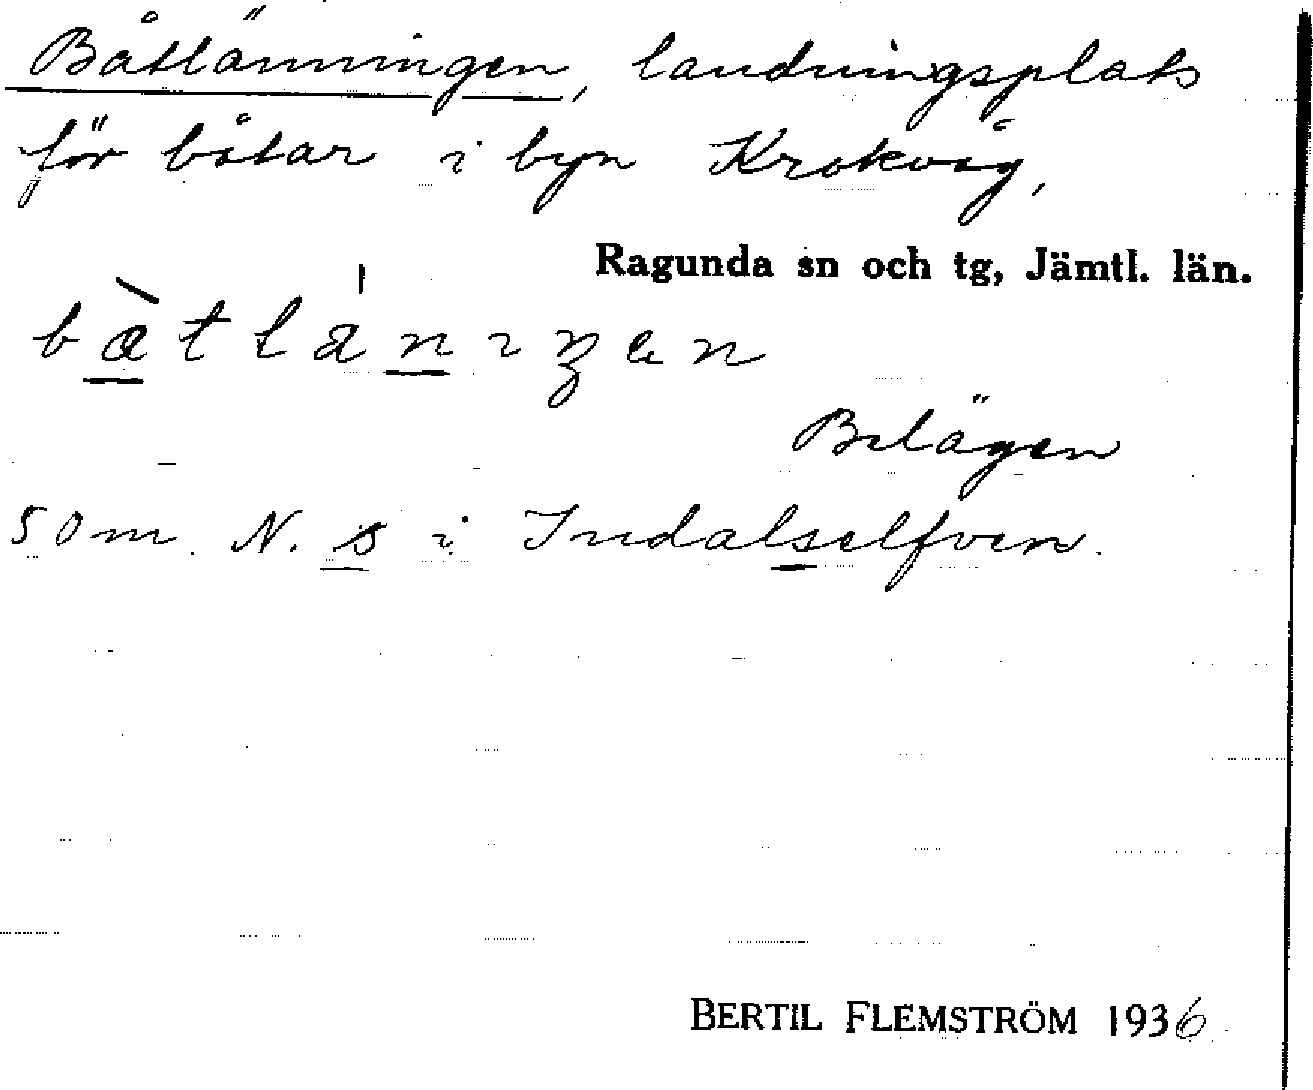 Båtlänningen, landningsplats
för båtar i byn Krokvåg,
Ragunda sn och tg, Jämtl. län.
Belägen
50 m. N. s i Indalselfven.
BERTIL FLEMSTRÖM 1936